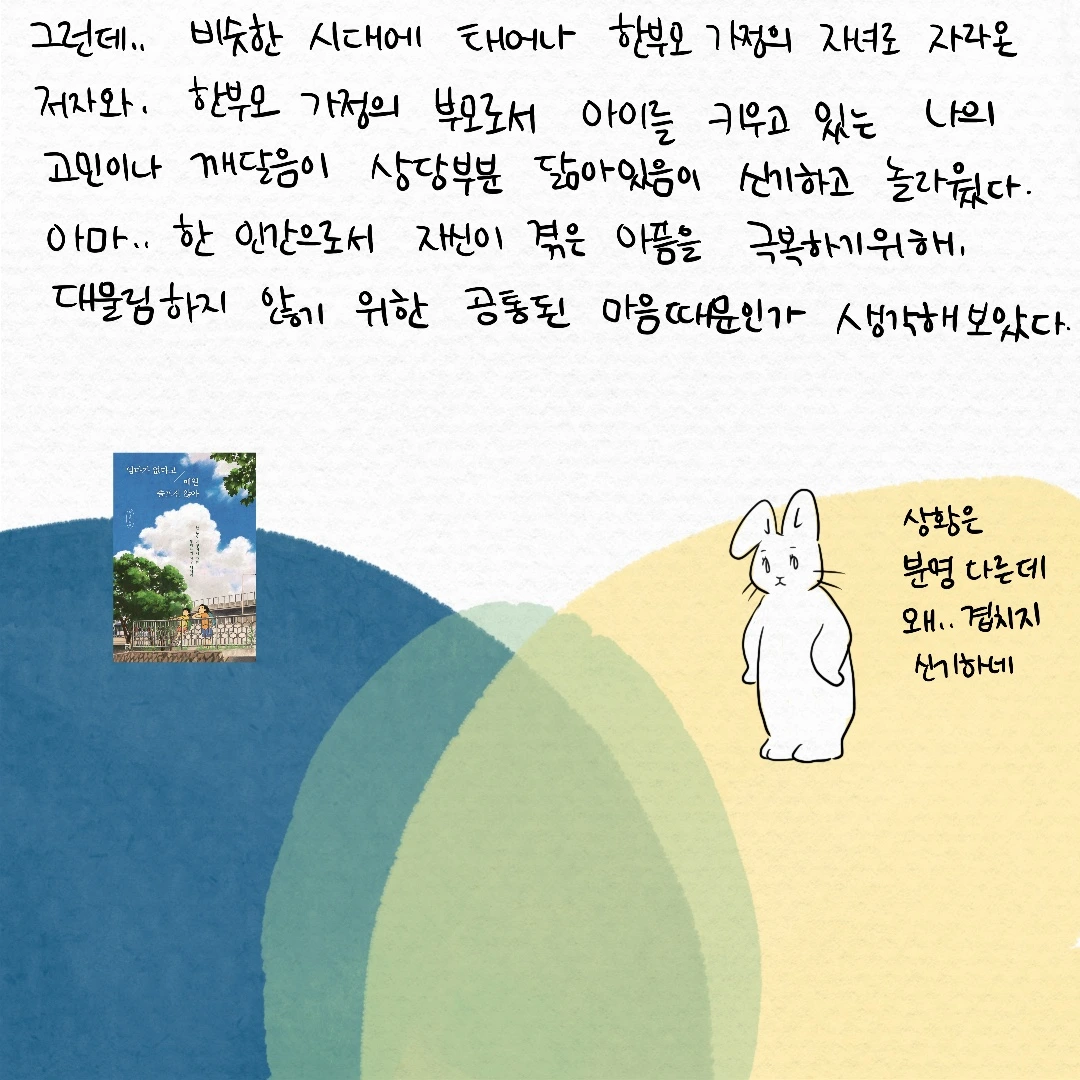 그런데.. 비슷한 시대에 태어나 한부모 가정의 자녀로 자라온
저자와, 한부모 가정의 부모로서 아이를 키우고 있는 나의
고민이나 깨달음이 상당부분 닮아있음이 신기하고 놀라웠다.
아마.. 한 인간으로서 자신이 겪은 아픔을 극복하기위해,
대물림하지 않기 위한 공통된 마음때문인가 생각해보았다.
엄마가 없다고
매일
슬프진 않아
상황은
분명 다른데
왜.. 겹치지
신기하네